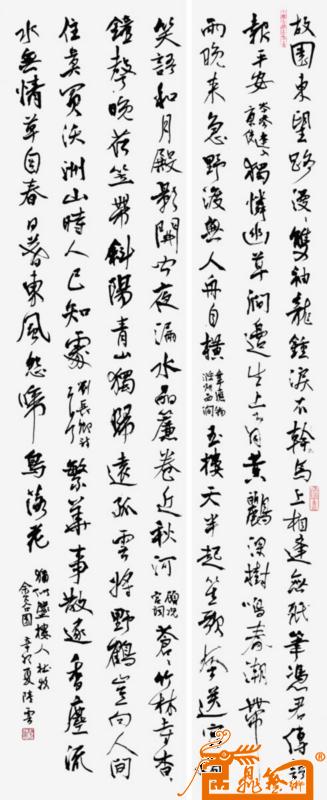 故園東望路漫漫雙袖龍鍾淚不乾馬上相逢無紙筆憑君傳語
報平安岑參逢入京使獨憐幽草澗邊生上有黄鸝深樹鳴春潮帶
雨晚来急野渡無人舟自横韋應物滁州西澗玉樓天半起笙歌風送宫
笑語和月殿影開聞夜漏水晶簾卷近秋河顧况宫詞蒼蒼竹林寺杳杳
鐘聲晚荷笠帶斜陽青山獨歸遠孤雲將野鶴豈向人間
住莫買沃洲山時人已知處劉長卿詩二首繁華事散逐香塵流
水無情草自春日暮東風怨啼鳥落花
猶似墜樓人杜牧
金谷園辛卯夏